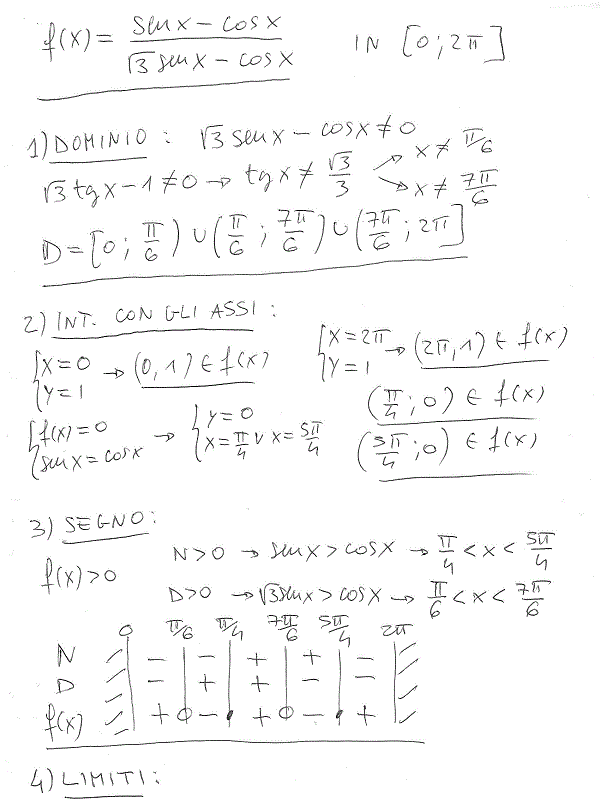 f(x) = (sen x - cos x) / (√3 sen x - cos x) IN [0; 2π]
1) DOMINIO: √3 sen x - cos x ≠ 0
√3 tg x - 1 ≠ 0 → tg x ≠ √3/3 → x ≠ π/6 → x ≠ 7π/6
D = [0; π/6) ∪ (π/6; 7π/6) ∪ (7π/6; 2π]
2) INT. CON GLI ASSI:
{x = 0 y = 1 → (0, 1) ∈ f(x) {x = 2π y = 1 → (2π, 1) ∈ f(x)
{f(x) = 0 sen x = cos x → {y = 0 x = π/4 ∨ x = 5π/4 (π/4; 0) ∈ f(x)
(5π/4; 0) ∈ f(x)
3) SEGNO:
f(x) > 0 N > 0 → sen x > cos x → π/4 < x < 5π/4
D > 0 → √3 sen x > cos x → π/6 < x < 7π/6
0 π/6 π/4 7π/6 5π/4 2π
N - - + + -
D - + + - -
f(x) + - + - +
4) LIMITI: